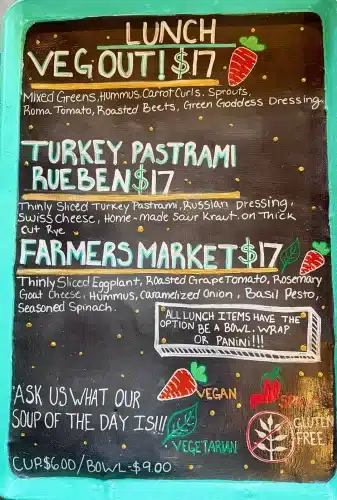 LUNCH
VEG OUT! $17
Mixed Greens, Hummus, Carrot Curls, Sprouts,
Roma Tomato, Roasted Beets, Green Goddess Dressing
TURKEY PASTRAMI
RUEBEN $17
Thinly Sliced Turkey Pastrami, Russian Dressing,
Swiss Cheese, Home-made Saur Kraut. on Thick
Cut Rye
FARMERS MARKET $17
Thinly Sliced Eggplant, Roasted Grape Tomato, Rosemary
Goat Cheese, Hummus, Caramelized Onion, Basil Pesto,
Seasoned Spinach.
ALL LUNCH ITEMS HAVE THE
OPTION BE A BOWL. WRAP
OR PANINI!!!
ASK US WHAT OUR
SOUP OF THE DAY IS!!!
VEGAN
VEGETARIAN
GLUTEN
FREE
CUP $6.00/BOWL-$9.00